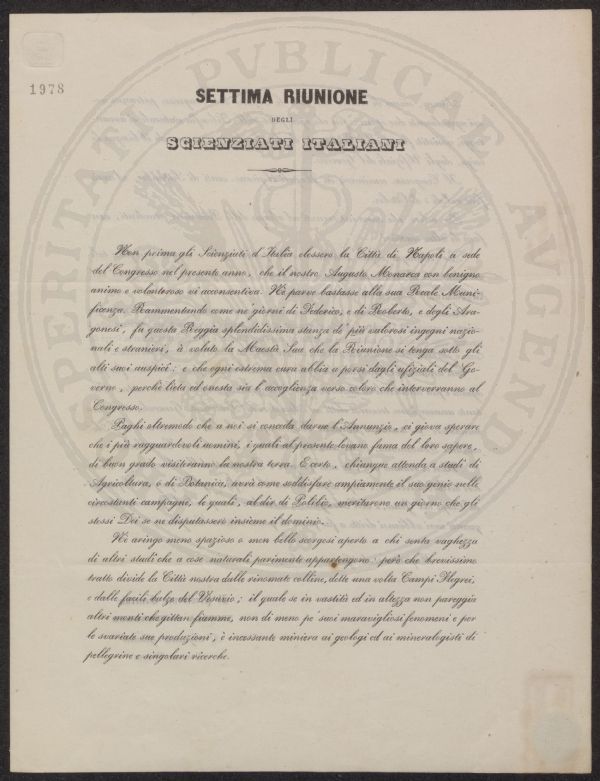 1978
SPERITATI PVBLICAE AVGENDAE
SETTIMA RIUNIONE
DEGLI
SCIENZIATI ITALIANI
Non prima gli Scienziati d'Italia elessero la Città di Napoli a sede
del Congresso nel presente anno, che il nostro Augusto Monarca con benigno
animo e volonteroso vi acconsentiva. Nè parve bastasse alla sua Reale Muni-
ficenza. Rammentando come ne' giorni di Federico, e di Roberto, e degli Ara-
gonesi, fu questa Reggia splendidissima stanza de' più valorosi ingegni nazio-
nali e stranieri, à voluto la Maestà Sua che la Riunione si tenga sotto gli
alti suoi auspici: e che ogni estrema cura abbia a porsi dagli ufiziali del Go-
verno, perchè lieta ed onesta sia l'accoglienza verso coloro che interverranno al
Congresso.
Paghi oltremodo che a noi si conceda darne l'Annunzio, ci giova sperare
che i più ragguardevoli uomini, i quali al presente levano fama del loro sapere,
di buon grado visiteranno la nostra terra. E certo, chiunque attenda a studî di
Agricoltura, o di Botanica, avrà come soddisfare ampiamente il suo genio nelle
circostanti campagne, le quali, al dir di Polibio, meritarono un giorno che gli
stessi Dei se ne disputassero insieme il dominio.
Nè aringo meno spazioso o men bello scorgesi aperto a chi senta vaghezza
di altri studî che a cose naturali parimente appartengono: però che brevissimo
tratto divide la Città nostra dalle rinomate colline, dette una volta Campi Flegrei,
e dalle facili balze del Vesuvio; il quale se in vastità ed in altezza non pareggia
altri monti che gittan fiamme, non di meno pe' suoi maravigliosi fenomeni e per
le svariate sue produzioni, è incessante miniera ai geologi ed ai mineralogisti di
pellegrine e singolari ricerche.